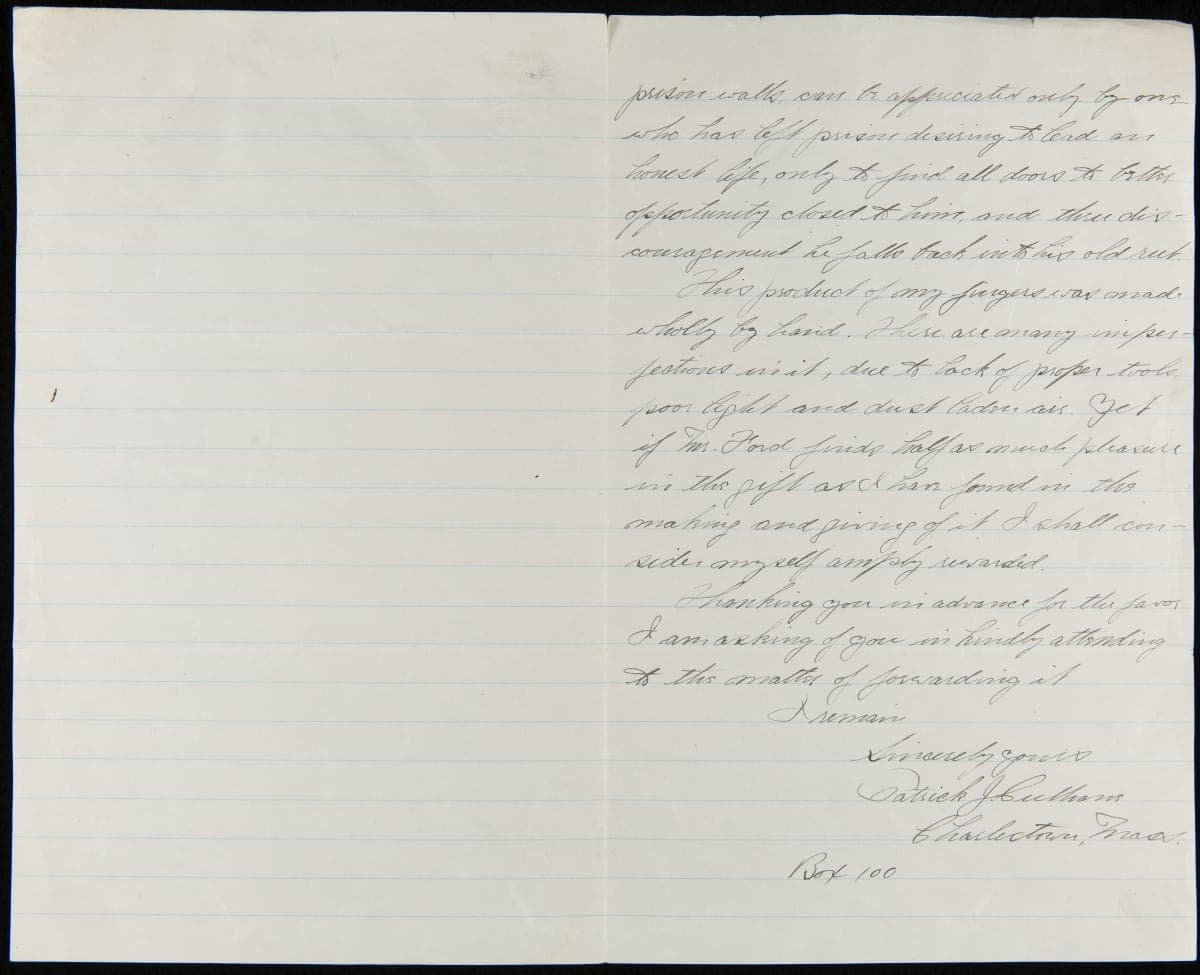 prison walls, can be appreciated only by one
who has left prison desiring to lead an
honest life, only to find all doors to better
opportunity closed to him, and thru dis-
couragement he falls back into his old rut.
This product of my fingers was made
wholly by hand. There are many imper-
fections in it, due to lack of proper tools
poor light and dust laden air. Yet
if Mr. Ford finds half as much pleasure
in the gift as I have found in the
making and giving of it I shall con-
sider myself amply rewarded.
Thanking you in advance for the favor
I am asking of you in kindly attending
to the matter of forwarding it
I remain
Sincerely yours
Patrick J.
Charlestown, Mass.
Box 100